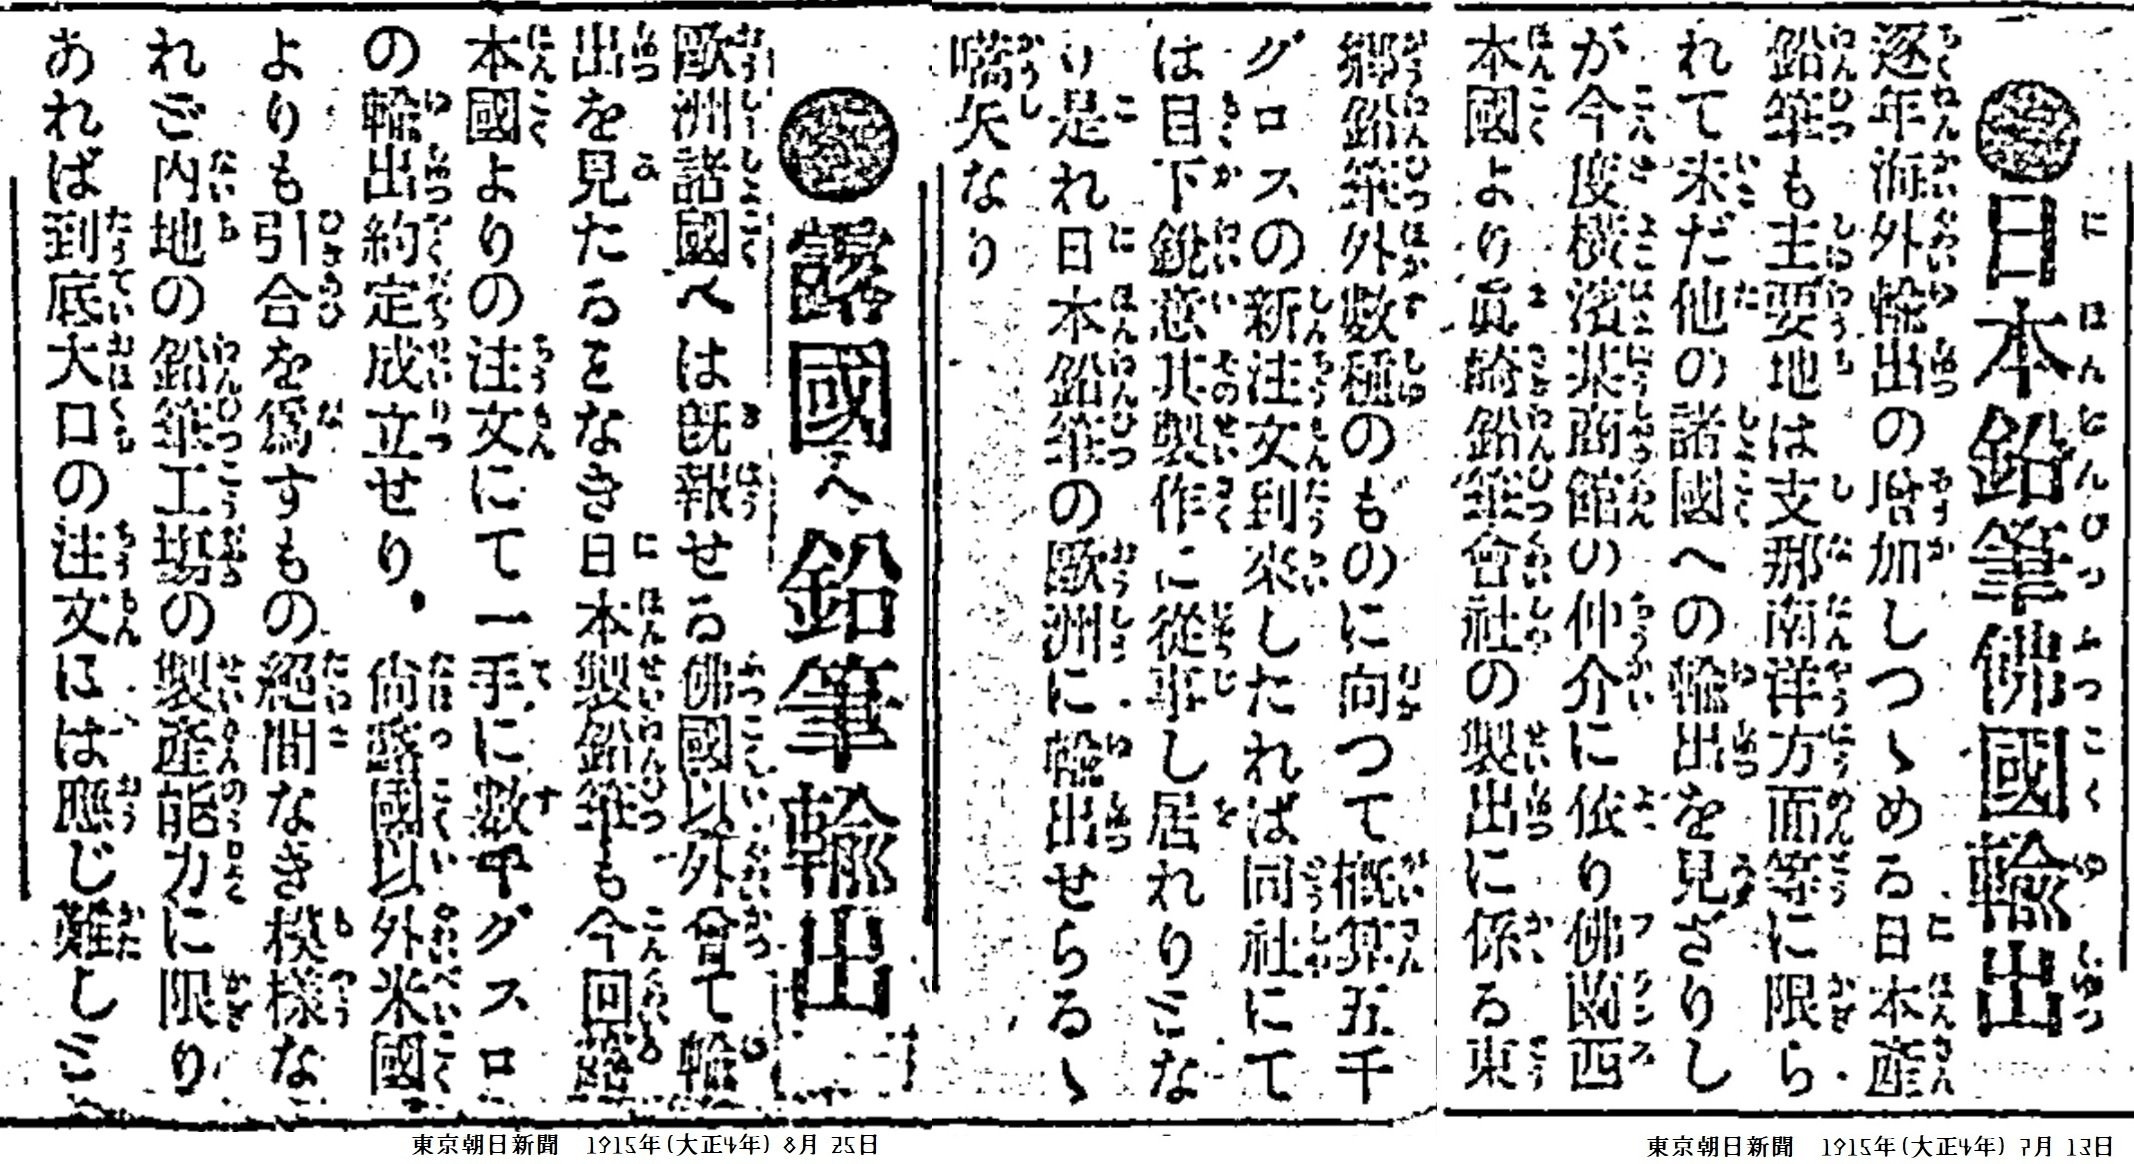 ●日本鉛筆佛國輸出
逐年海外輸出の増加しつゝめる日本産
鉛筆も主要地は支那南洋方面等に限ら
れて未だ他の諸國への輸出を見ざりし
が今度横濱某商館の仲介に依り佛蘭西
本國より眞崎鉛筆會社の製出に係る東
郷鉛筆外數種のものに向つて概算五千
グロスの新注文到來したれば同社にて
は目下鋭意其製作に從事し居れりとな
り是れ日本鉛筆の歐洲に輸出せらるゝ
嚆矢なり
東京朝日新聞　1915年(大正4年) 7月 13日
●露國へ鉛筆輸出
歐洲諸國へは既報せる佛國以外曾て輸
出を見たることなき日本製鉛筆も今回露
本國よりの注文にて一手に數千グスロ
の輸出約定成立せり、尚露國以外米國
よりも引合を爲すもの絶間なき模樣な
れど内地の鉛筆工塲の製産能力に限り
あれば到底大口の注文には應じ難しと
東京朝日新聞　1915年(大正4年) 8月 25日